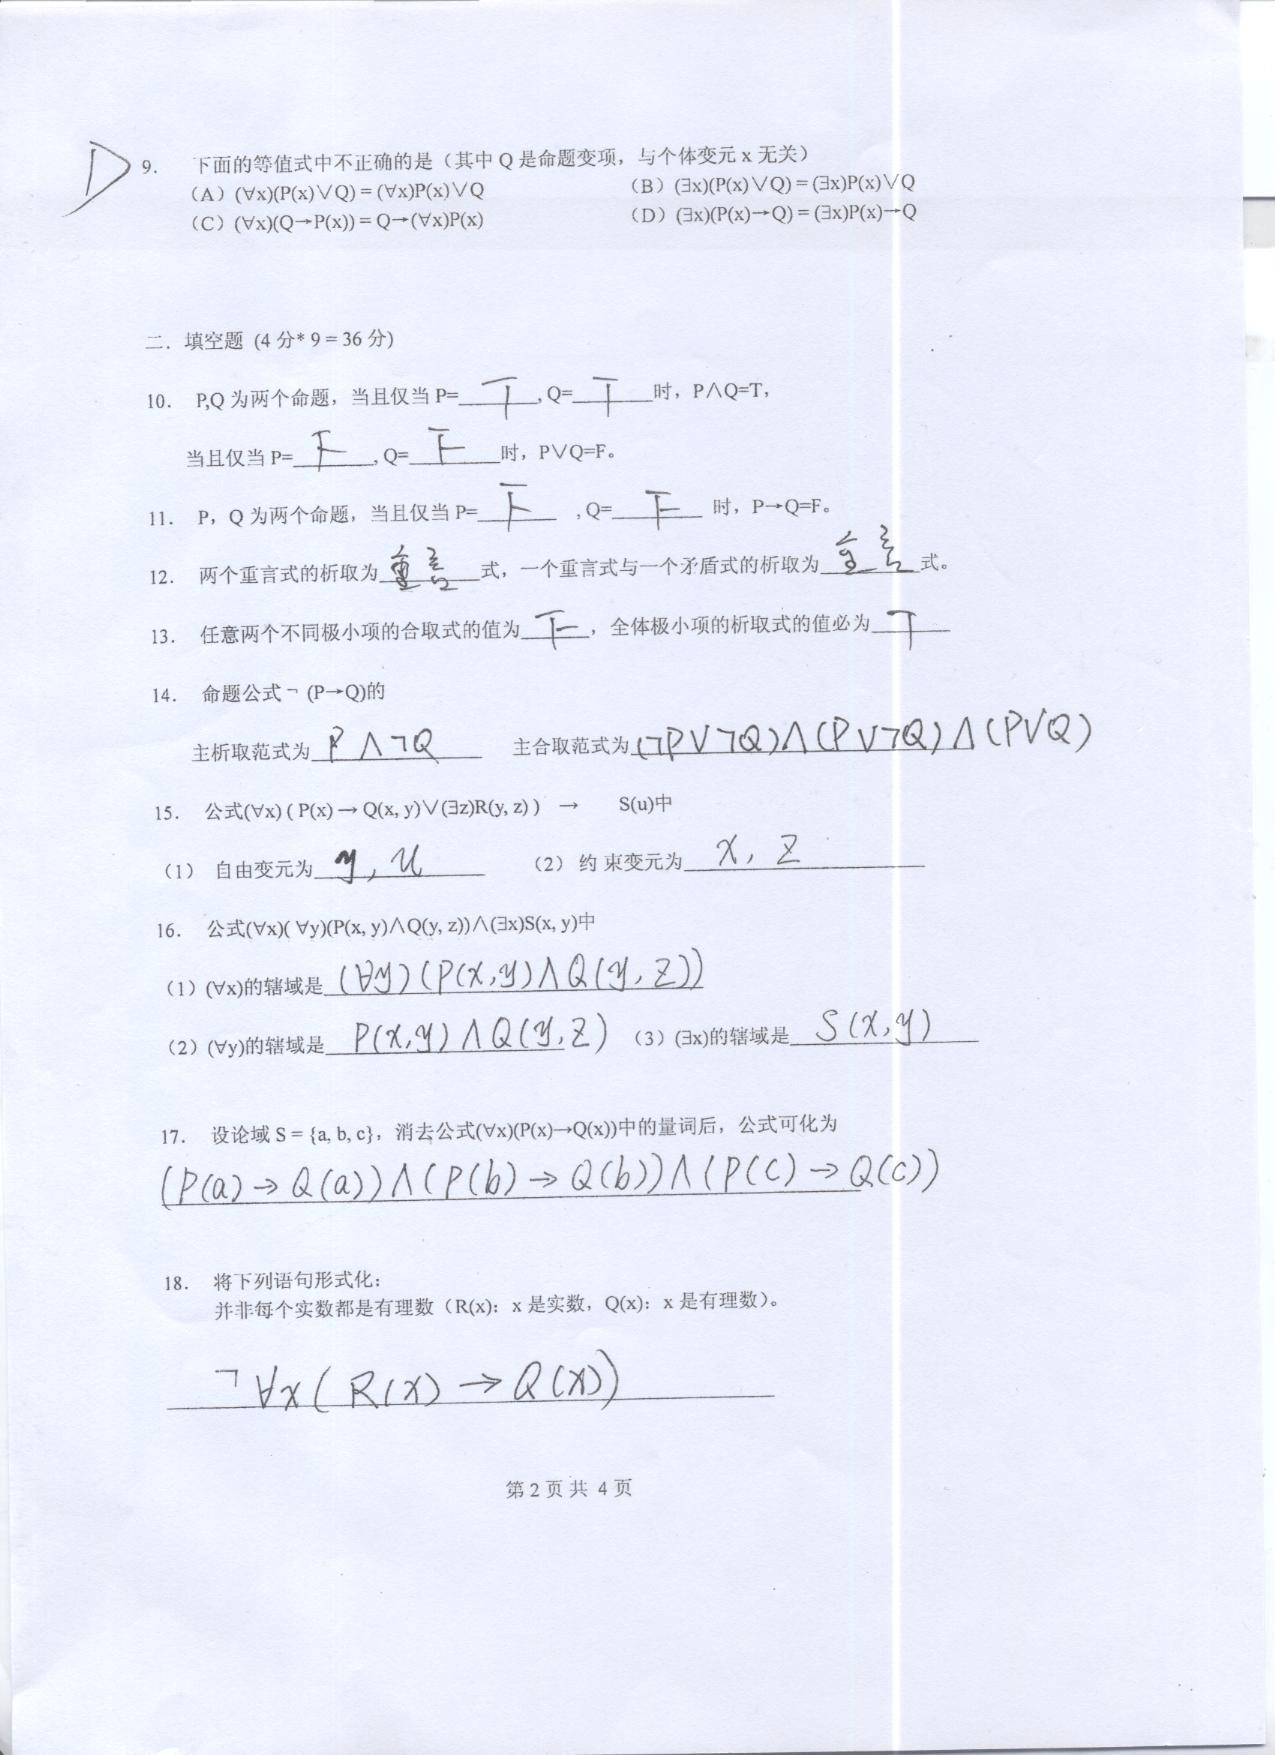 D 9. 下面的等值式中不正确的是（其中 Q 是命题变项，与个体变元 x 无关）
（A）(∀x)(P(x)∨Q) = (∀x)P(x)∨Q （B）(∃x)(P(x)∨Q) = (∃x)P(x)∨Q
（C）(∀x)(Q→P(x)) = Q→(∀x)P(x) （D）(∃x)(P(x)→Q) = (∃x)P(x)→Q
二．填空题 (4 分* 9 = 36 分)
10. P,Q 为两个命题，当且仅当 P= T , Q= T 时，P∧Q=T，
当且仅当 P= F , Q= F 时，P∨Q=F。
11. P，Q 为两个命题，当且仅当 P= F , Q= F 时，P→Q=F。
12. 两个重言式的析取为 重言 式，一个重言式与一个矛盾式的析取为 重言 式。
13. 任意两个不同极小项的合取式的值为 F ，全体极小项的析取式的值必为 T
14. 命题公式¬ (P→Q)的
主析取范式为 P∧¬Q 主合取范式为 (¬P∨¬Q)∧(P∨¬Q)∧(P∨Q)
15. 公式(∀x) ( P(x) → Q(x, y)∨(∃z)R(y, z) ) → S(u)中
（1） 自由变元为 y, u （2） 约 束变元为 x, z
16. 公式(∀x)( ∀y)(P(x, y)∧Q(y, z))∧(∃x)S(x, y)中
（1）(∀x)的辖域是 (∀y)(P(x,y)∧Q(y,z))
（2）(∀y)的辖域是 P(x,y)∧Q(y,z) （3）(∃x)的辖域是 S(x,y)
17. 设论域 S = {a, b, c}，消去公式(∀x)(P(x)→Q(x))中的量词后，公式可化为
(P(a)→Q(a))∧(P(b)→Q(b))∧(P(c)→Q(c))
18. 将下列语句形式化：
并非每个实数都是有理数（R(x)：x 是实数，Q(x)：x 是有理数）。
¬∀x(R(x)→Q(x))
第 2 页 共 4 页